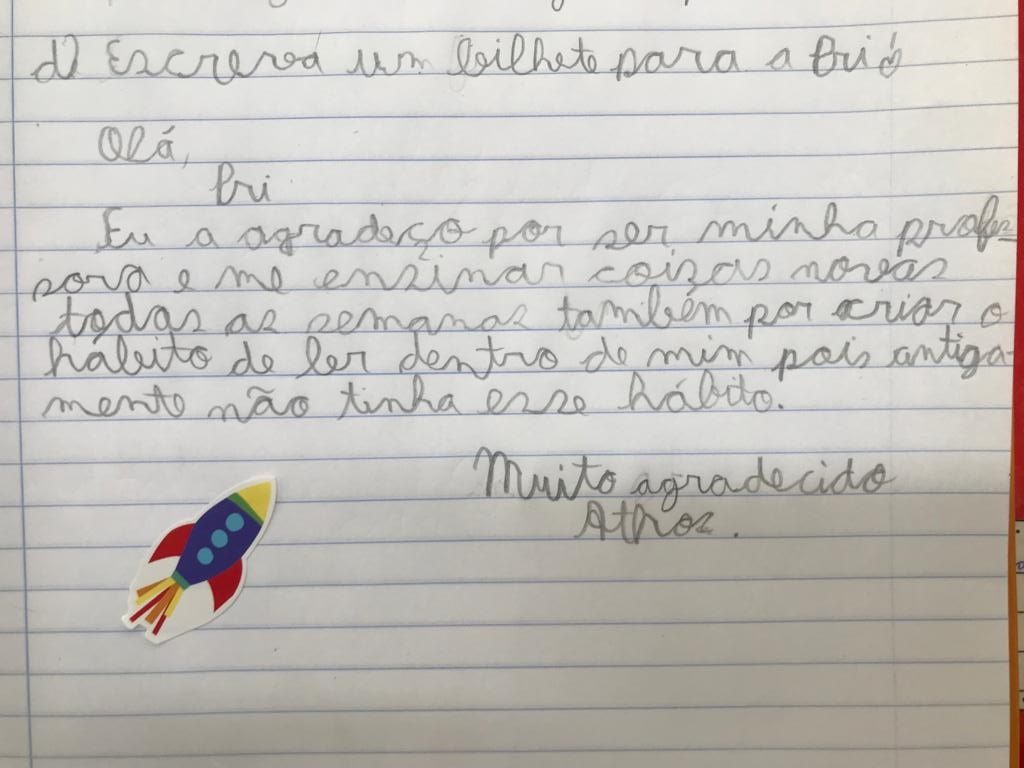 d) Escreva um bilhete para a Pri
Olá,
Pri
Eu a agradeço por ser minha profes-
sora e me ensinar coisas novas
todas as semanas também por criar o
hábito de ler dentro de mim pois antiga-
mente não tinha esse hábito.
Muito agradecido
Athos.